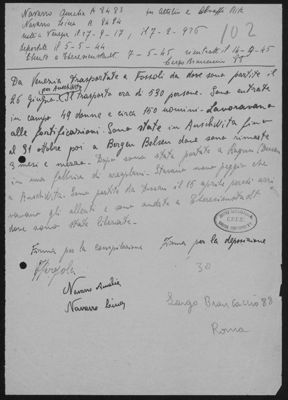 Navarro Amelia A 8483 fu Attilio e Astroffe Rita
Navarro Luisa A 8484
nata a Venezia il 27-9-17, il 7-8-926
102
deportate il 5-5-44
liberate a Theresienstadt 7-5-45 rientrate il 14-9-45
Largo Brancaccio 88
Da Venezia trasportate a Fossoli da dove sono partite il
26 giugno per Auschwitz. Il trasporto era di 590 persone. Sono entrate
in campo 49 donne e circa 150 uomini. Lavoravano
alle fortificazioni. Sono state in Auschwitz fino
al 31 ottobre poi a Bergen Belsen dove sono rimaste
3 mesi e mezzo. Dopo sono state portate a
in una fabbrica di. Stavano meno peggio che
a Auschwitz. Sono partite da il 15 aprile perché arri
vavano gli alleati e sono andate a Theresienstadt
dove sono state liberate.
Firma per la compilazione Firma per la deposizione
Navarro Amelia
Navarro Luisa
30
Largo Brancaccio 88
Roma